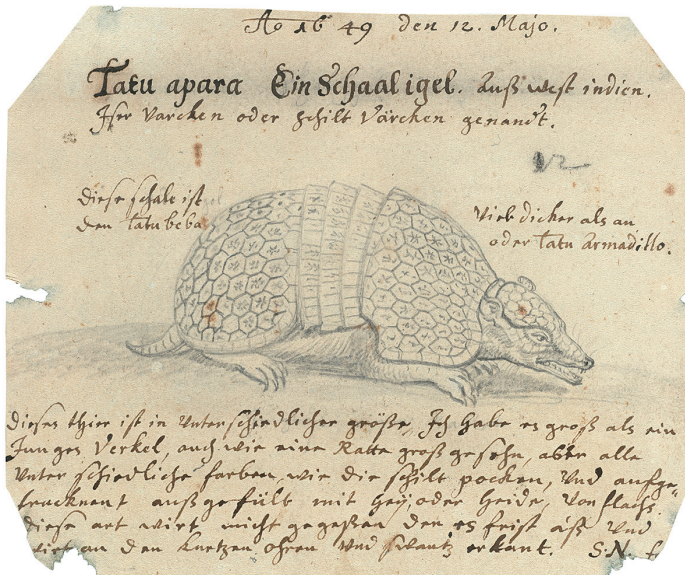 Ao 1649 den 12. Majo.
Tatu apara Ein Schaaligel. Auß west indien.
Jser Varcken oder Schilt Värcken genandt.
diese schale ist
den Tatu beba
Vieb dicker als an
oder Tatu Armadillo.
dieses thier ist in Unterschiedlicher größe, Jch habe es groß als ein
Junges Verkel, auch wie eine Ratte groß gesehn, aber alle
Unter schiedliche farben, wie die schilt pocken, Und aufge=
trucknent außgefült mit heij, oder heide, Von flachs.
diese art wirt nicht gegeßen den es frist áß Und
wirt an den kurtzen ohren Und swantz erkant. S:N. f